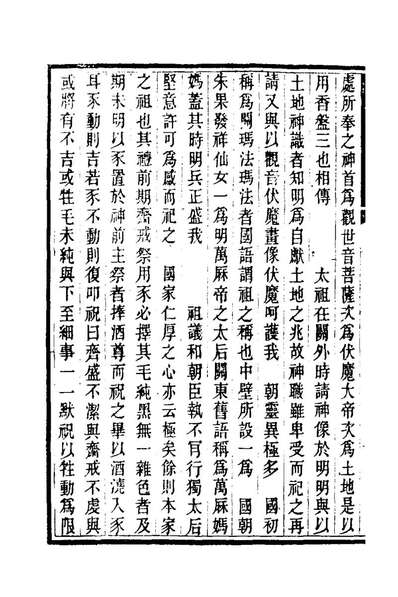 處所奉之神首爲觀世音菩薩次爲伏魔大帝次爲土地是以
用香盤三也相傳　太祖在關外時請神像於明明與以
土地神識者知明爲自獻土地之兆故神職雖卑受而祀之再
請又與以觀音伏魔畫像伏魔呵護我　朝靈異極多　國初
稱爲關瑪法瑪法者國語謂祖之稱也中壁所設一爲　國朝
朱果發祥仙女一爲明萬厤帝之太后關東舊語稱爲萬厤媽
媽蓋其時明兵正盛我　祖議和朝臣執不肎行獨太后
堅意許可爲感而祀之　國家仁厚之心亦云極矣餘則本家
之祖也其禮前期齋戒祭用豕必擇其毛純黑無一雜色者及
期未明以豕置於神前主祭者捧酒尊而祝之舉以酒澆入豕
耳豕動則吉若豕不動則復叩祝曰齊盛不潔與齋戒不虔與
或將有不吉或牲毛未純與下至細事一一默祝以牲動爲限